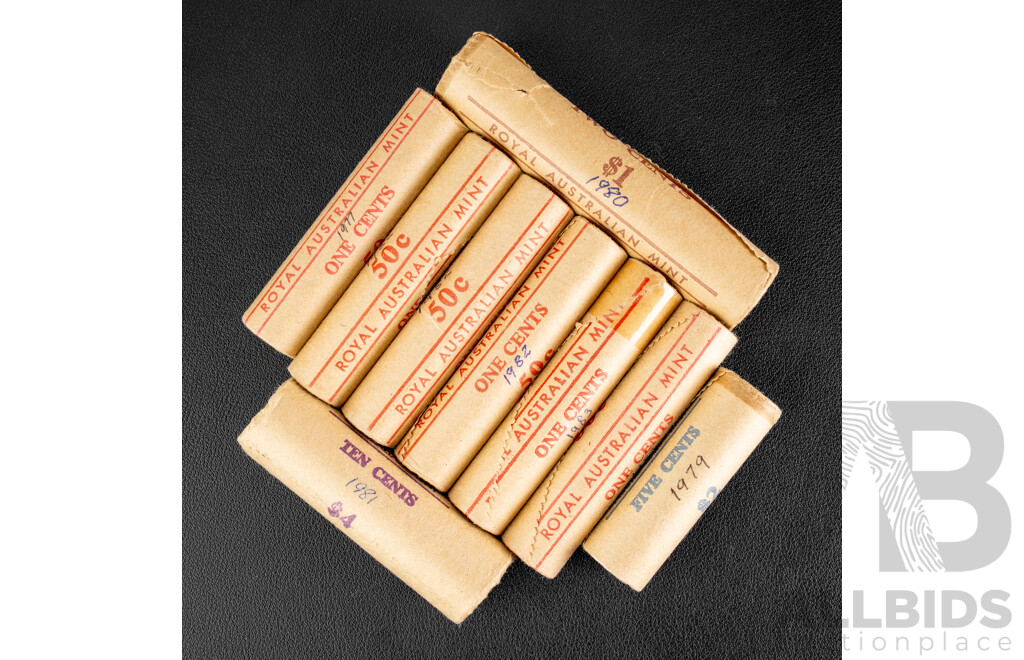 TWO CENTS
$1
1980
ROYAL AUSTRALIAN MINT
ROYAL AUSTRALIAN MINT
1977
ONE CENTS
50c
ROYAL AUSTRALIAN MINT
50c
ROYAL AUSTRALIAN MINT
ROYAL AUSTRALIAN MINT
ONE CENTS
1982
50c
AUSTRALIAN MIN
ONE CENTS
1983
ROYAL AUSTRALIAN MINT
ONE CENTS
FIVE CENTS
1979
$2
TEN CENTS
1981
$4
B
ALLBIDS